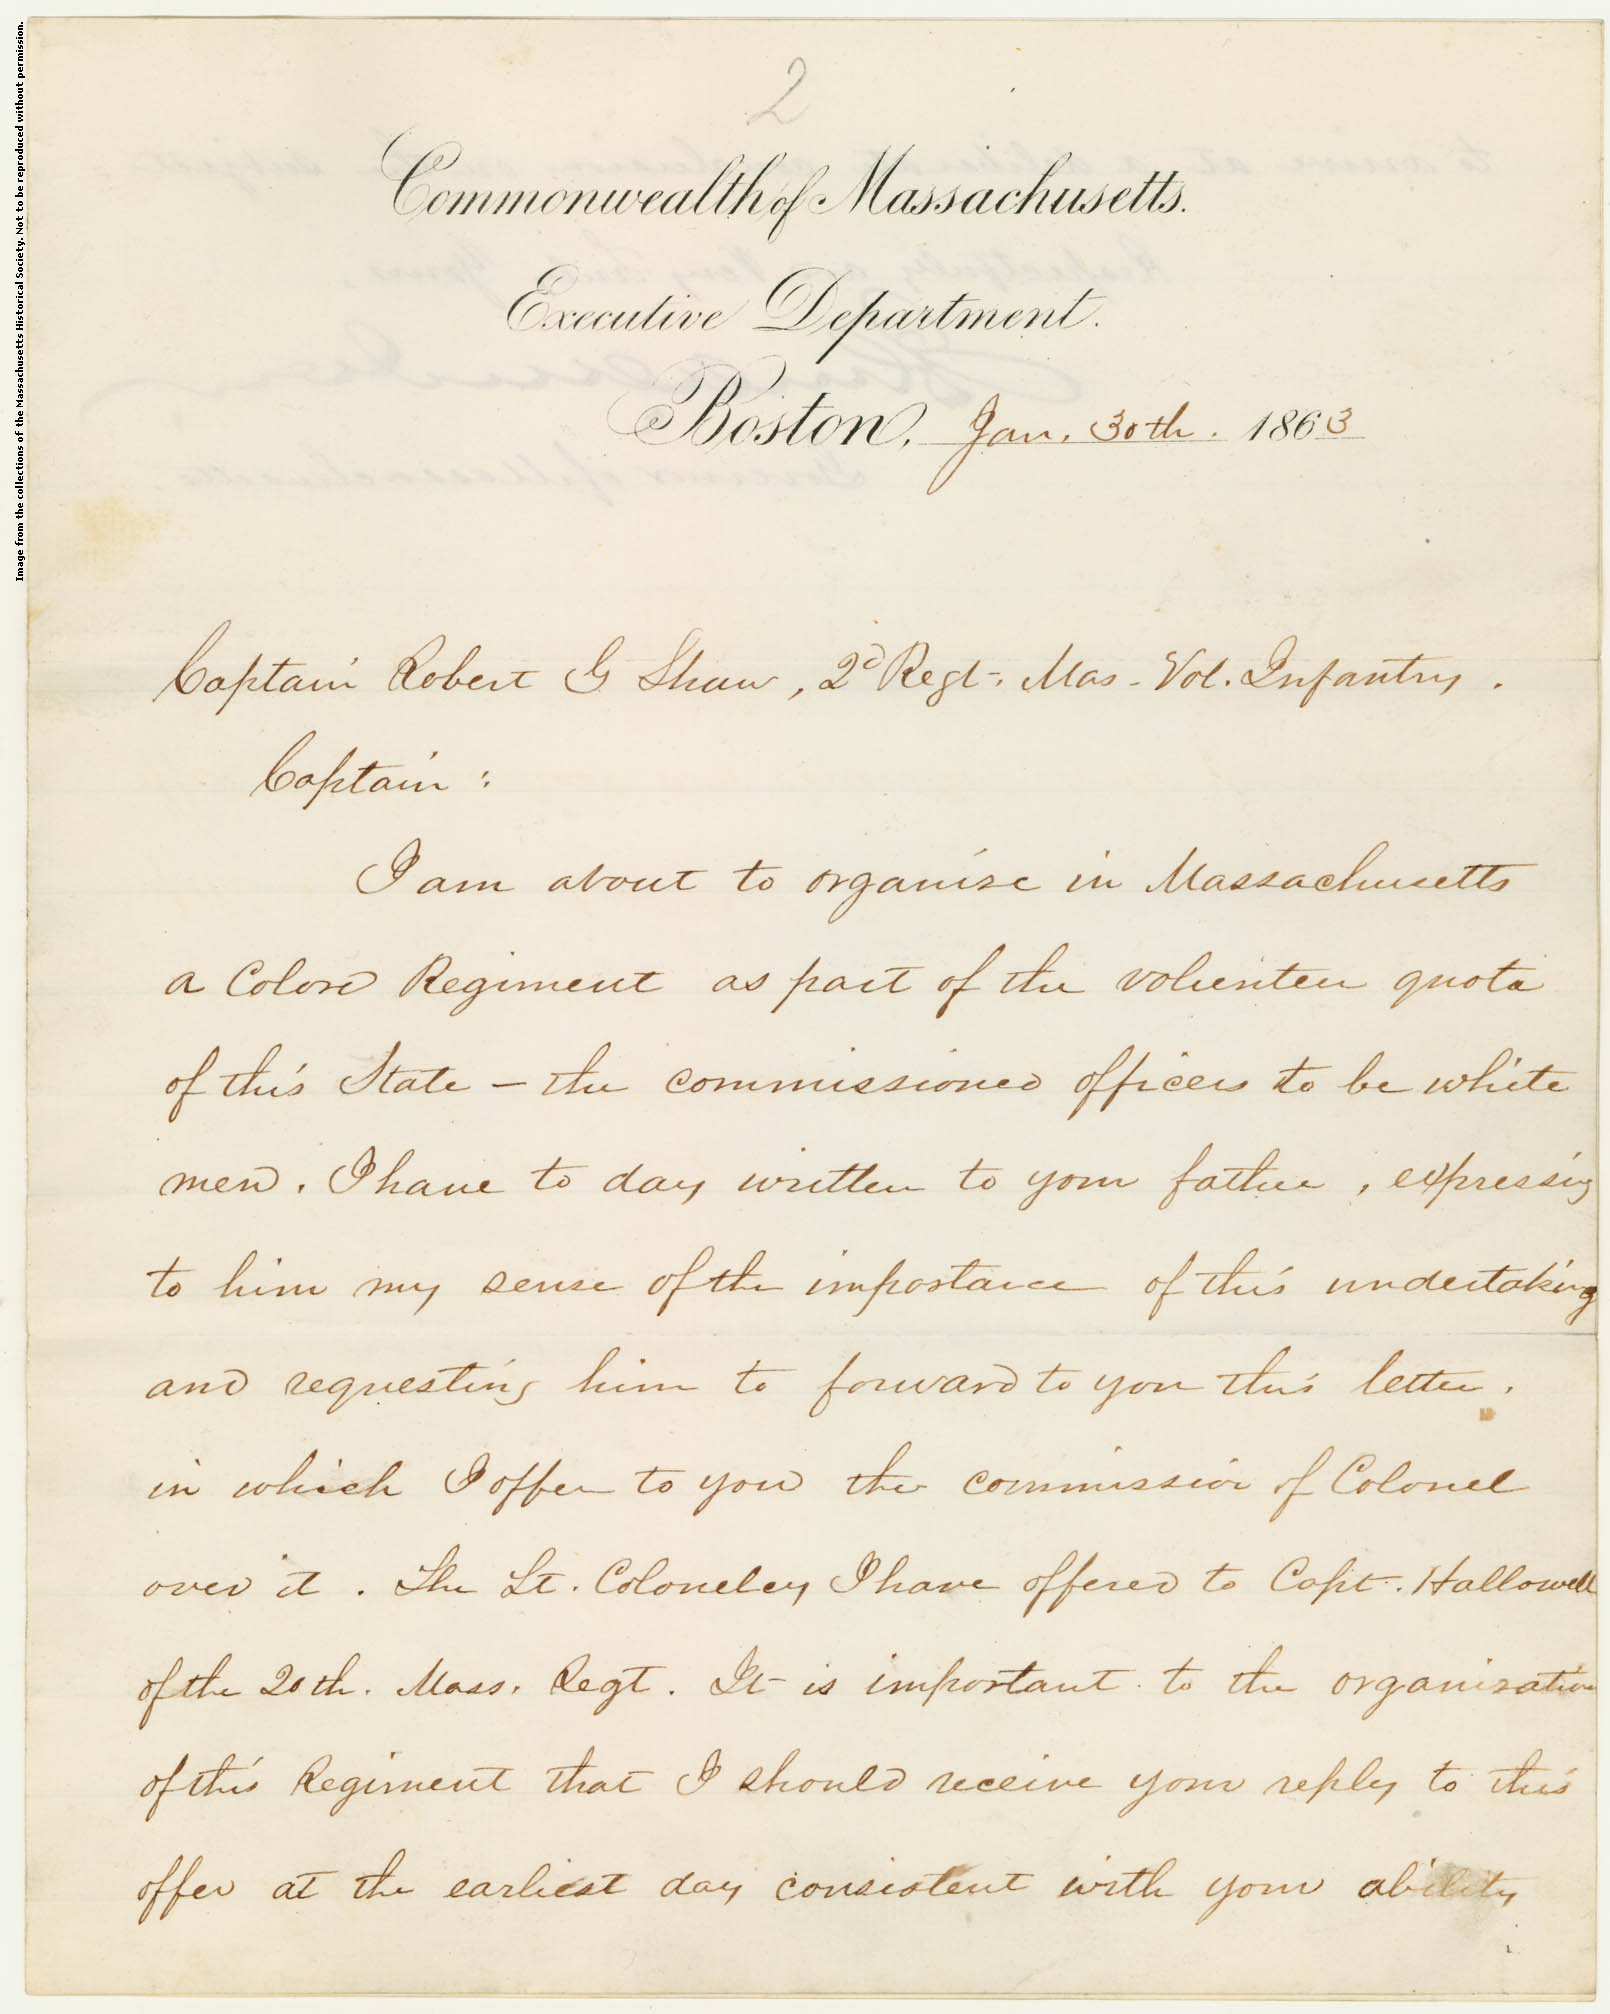 Image from the collections of the Massachusetts Historical Society. Not to be reproduced without permission.
2
Commonwealth of Massachusetts.
Executive Department.
Boston, Jan. 30th. 1863
Captain Robert G Shaw, 2d Regt. Mas. Vol. Infantry.
Captain:
I am about to organise in Massachusetts
a Colord Regiment as part of the volunteer quota
of this State – the commissioned officers to be white
men. I have to day written to your father, expressing
to him my sense of the importance of this undertaking
and requesting him to forward to you this letter.
in which I offer to you the commission of Colonel
over it. The Lt. Colonelcy I have offered to Capt. Hallowell
of the 20th. Mass. Regt. It is important to the organisation
of this Regiment that I should receive your reply to this
offer at the earliest day consistent with your ability